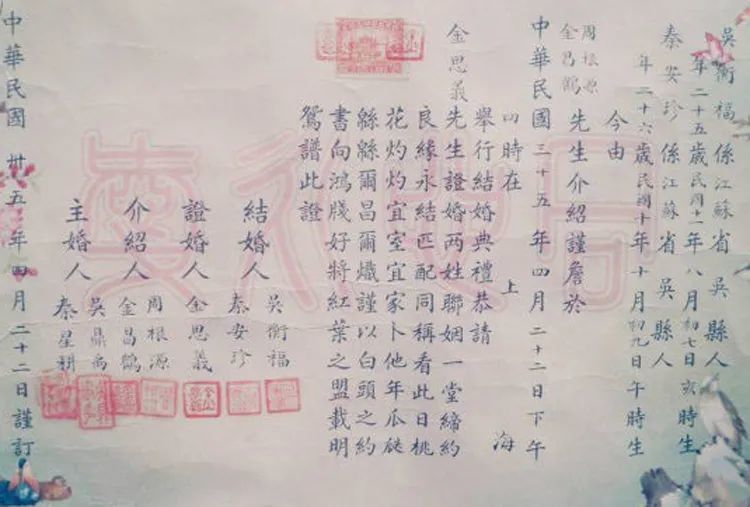 吳衡福 係江蘇省 吳縣人
年二十五歲民國十一年八月初七日亥時生
秦安珍 係江蘇省 吳縣人
年二十六歲民國十年十月初九日午時生
今由
周根源
金昌鶴 先生介紹謹詹於
中華民國三十五年四月二十二日下午
四時在 上海
舉行結婚典禮恭請
金思義先生證婚两姓聯姻一堂締約
良緣永結匹配同稱看此日桃
花灼灼宜室宜家卜他年瓜瓞
緜緜爾昌爾熾謹以白頭之約
書向鴻牋好將紅葉之盟載明
鴛譜此證
結婚人 吳衡福
秦安珍
證婚人 金思義
介紹人 周根源
金昌鶴
主婚人 吳鼎禹
秦星耕
中華民國卅五年四月二十二日謹訂